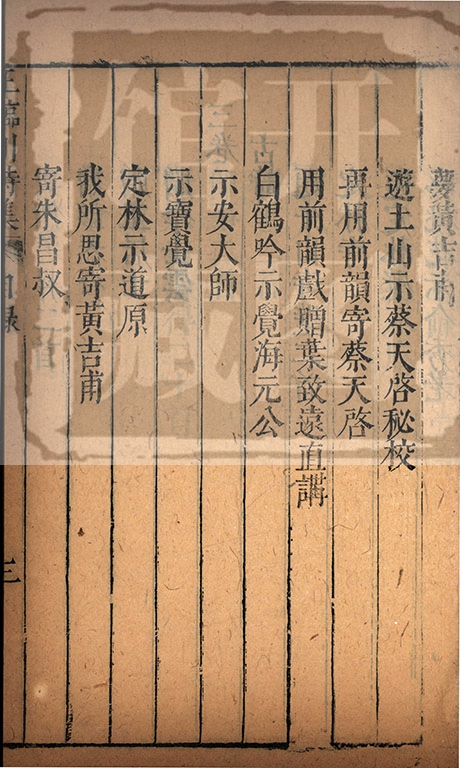 夢黃吉甫
遊土山示蔡天啓秘校
再用前韻寄蔡天啓
用前韻戲贈葉致遠直講
白鶴吟示覺海元公
示安大師
示寶覺
定林示道原
我所思寄黃吉甫
寄朱昌叔
王臨川詩集 目錄 三